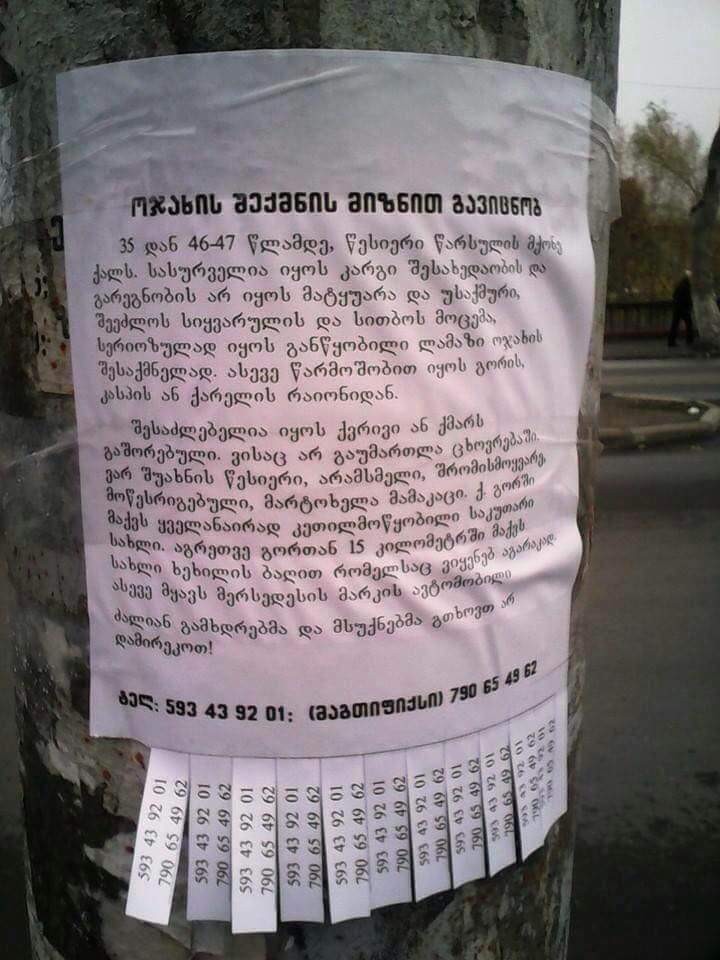 ოჯახის შექმნის მიზნით გავიცნობ
35 დან 46-47 წლამდე, წესიერი წარსულის მქონე
ქალს. სასურველია იყოს კარგი შესახედაობის და
გარეგნობის არ იყოს მატყუარა და უსაქმური,
შეეძლოს სიყვარულის და სითბოს მოცემა,
სერიოზულად იყოს განწყობილი ლამაზი ოჯახის
შესაქმნელად. ასევე წარმოშობით იყოს გორის,
კასპის ან ქარელის რაიონიდან.
შესაძლებელია იყოს ქვრივი ან ქმარს
გაშორებული. ვისაც არ გაუმართლა ცხოვრებაში.
ვარ შუახნის წესიერი, არამსმელი, შრომისმოყვარე,
მოწესრიგებული, მარტოხელა მამაკაცი. ქ. გორში
მაქვს ყველანაირად კეთილმოწყობილი საკუთარი
სახლი. აგრეთვე გორთან 15 კილომეტრში მაქვს
სახლი ხეხილის ბაღით რომელსაც ვიყენებ აგარაკად.
ასევე მყავს მერსედესის მარკის ავტომობილი
ძალიან გამხდრებმა და მსუქნებმა გთხოვთ არ
დამირეკოთ!
ტელ: 593 43 92 01; (მაგთიფიქსი) 790 65 49 62
593 43 92 01
790 65 49 62
593 43 92 01
790 65 49 62
593 43 92 01
790 65 49 62
593 43 92 01
790 65 49 62
593 43 92 01
790 65 49 62
593 43 92 01
790 65 49 62
593 43 92 01
790 65 49 62
593 43 92 01
790 65 49 62
593 43 92 01
790 65 49 62
593 43 92 01
790 65 49 62
593 43 92 01
790 65 49 62